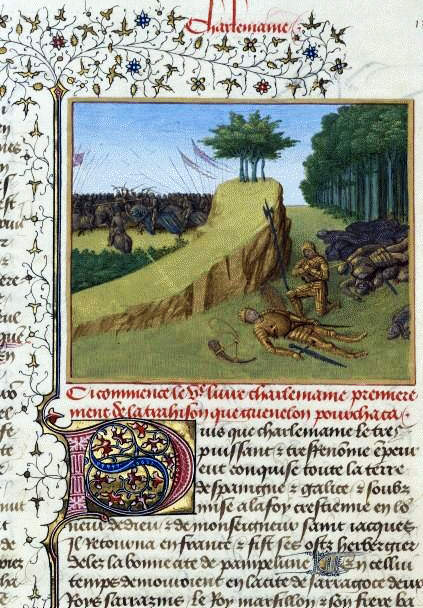 Charlemaine
Ci commence le Ve livre charlemaine premiere
ment de la trahison que guenelon pourchaca.
Puis que charlemaine le tres
puissant & tresrenomme
eut conquise toute la terre
despaigne & galice & soubz
mise a la foy crestienne en lo
neur de dieu & de monseigneur saint iacques
Il retourna en france & fist ses ostz herbergier
delez la bonne cite de pampelune En cellui
temps demouroient en la cite de sarragoce deux
Roys sarrazins. le Roy marsillon & son frere ba